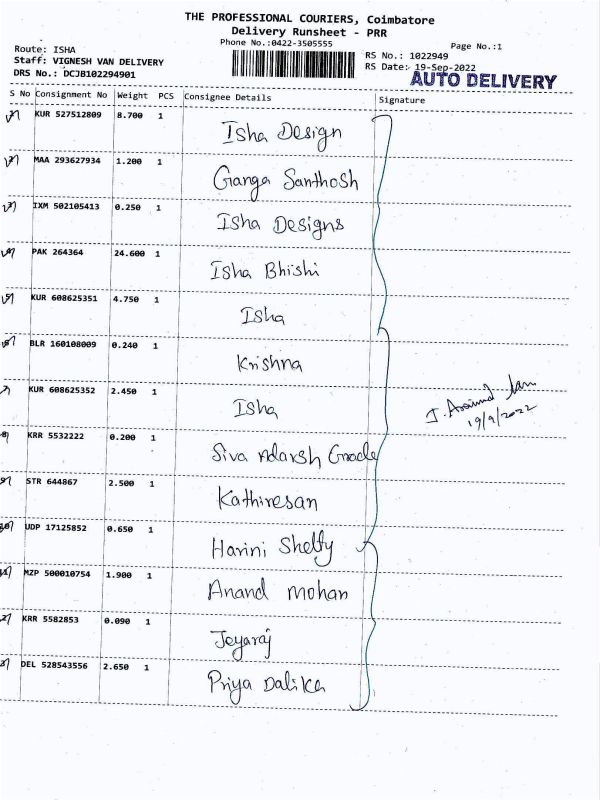 THE PROFESSIONAL COURIERS, Coimbatore
Delivery Runsheet - PRR
Phone No.:0422-3505555
Page No.:1
Route: ISHA
Staff: VIGNESH VAN DELIVERY
DRS No.: DCJB102294901
RS No.: 1022949
RS Date: 19-Sep-2022
AUTO DELIVERY
S No Consignment No Weight PCS Consignee Details Signature
1 KUR 527512809 8.700 1 Isha Design
2 MAA 293627934 1.200 1 Ganga Santhosh
3 IXM 502105413 0.250 1 Isha Designs
4 PAK 264364 24.600 1 Isha Bhishi
5 KUR 608625351 4.750 1 Isha
6 BLR 160108009 0.240 1 Krishna
7 KUR 608625352 2.450 1 Isha
19/9/2022
8 KRR 5532222 0.200 1 Siva Adarsh
9 STR 644867 2.500 1 Kathiresan
10 UDP 17125852 0.650 1 Harini Shetty
11 MZP 500010754 1.900 1 Anand mohan
KRR 5582853 0.090 1 Jeyaraj
DEL 528543556 2.650 1 Priya Dalika